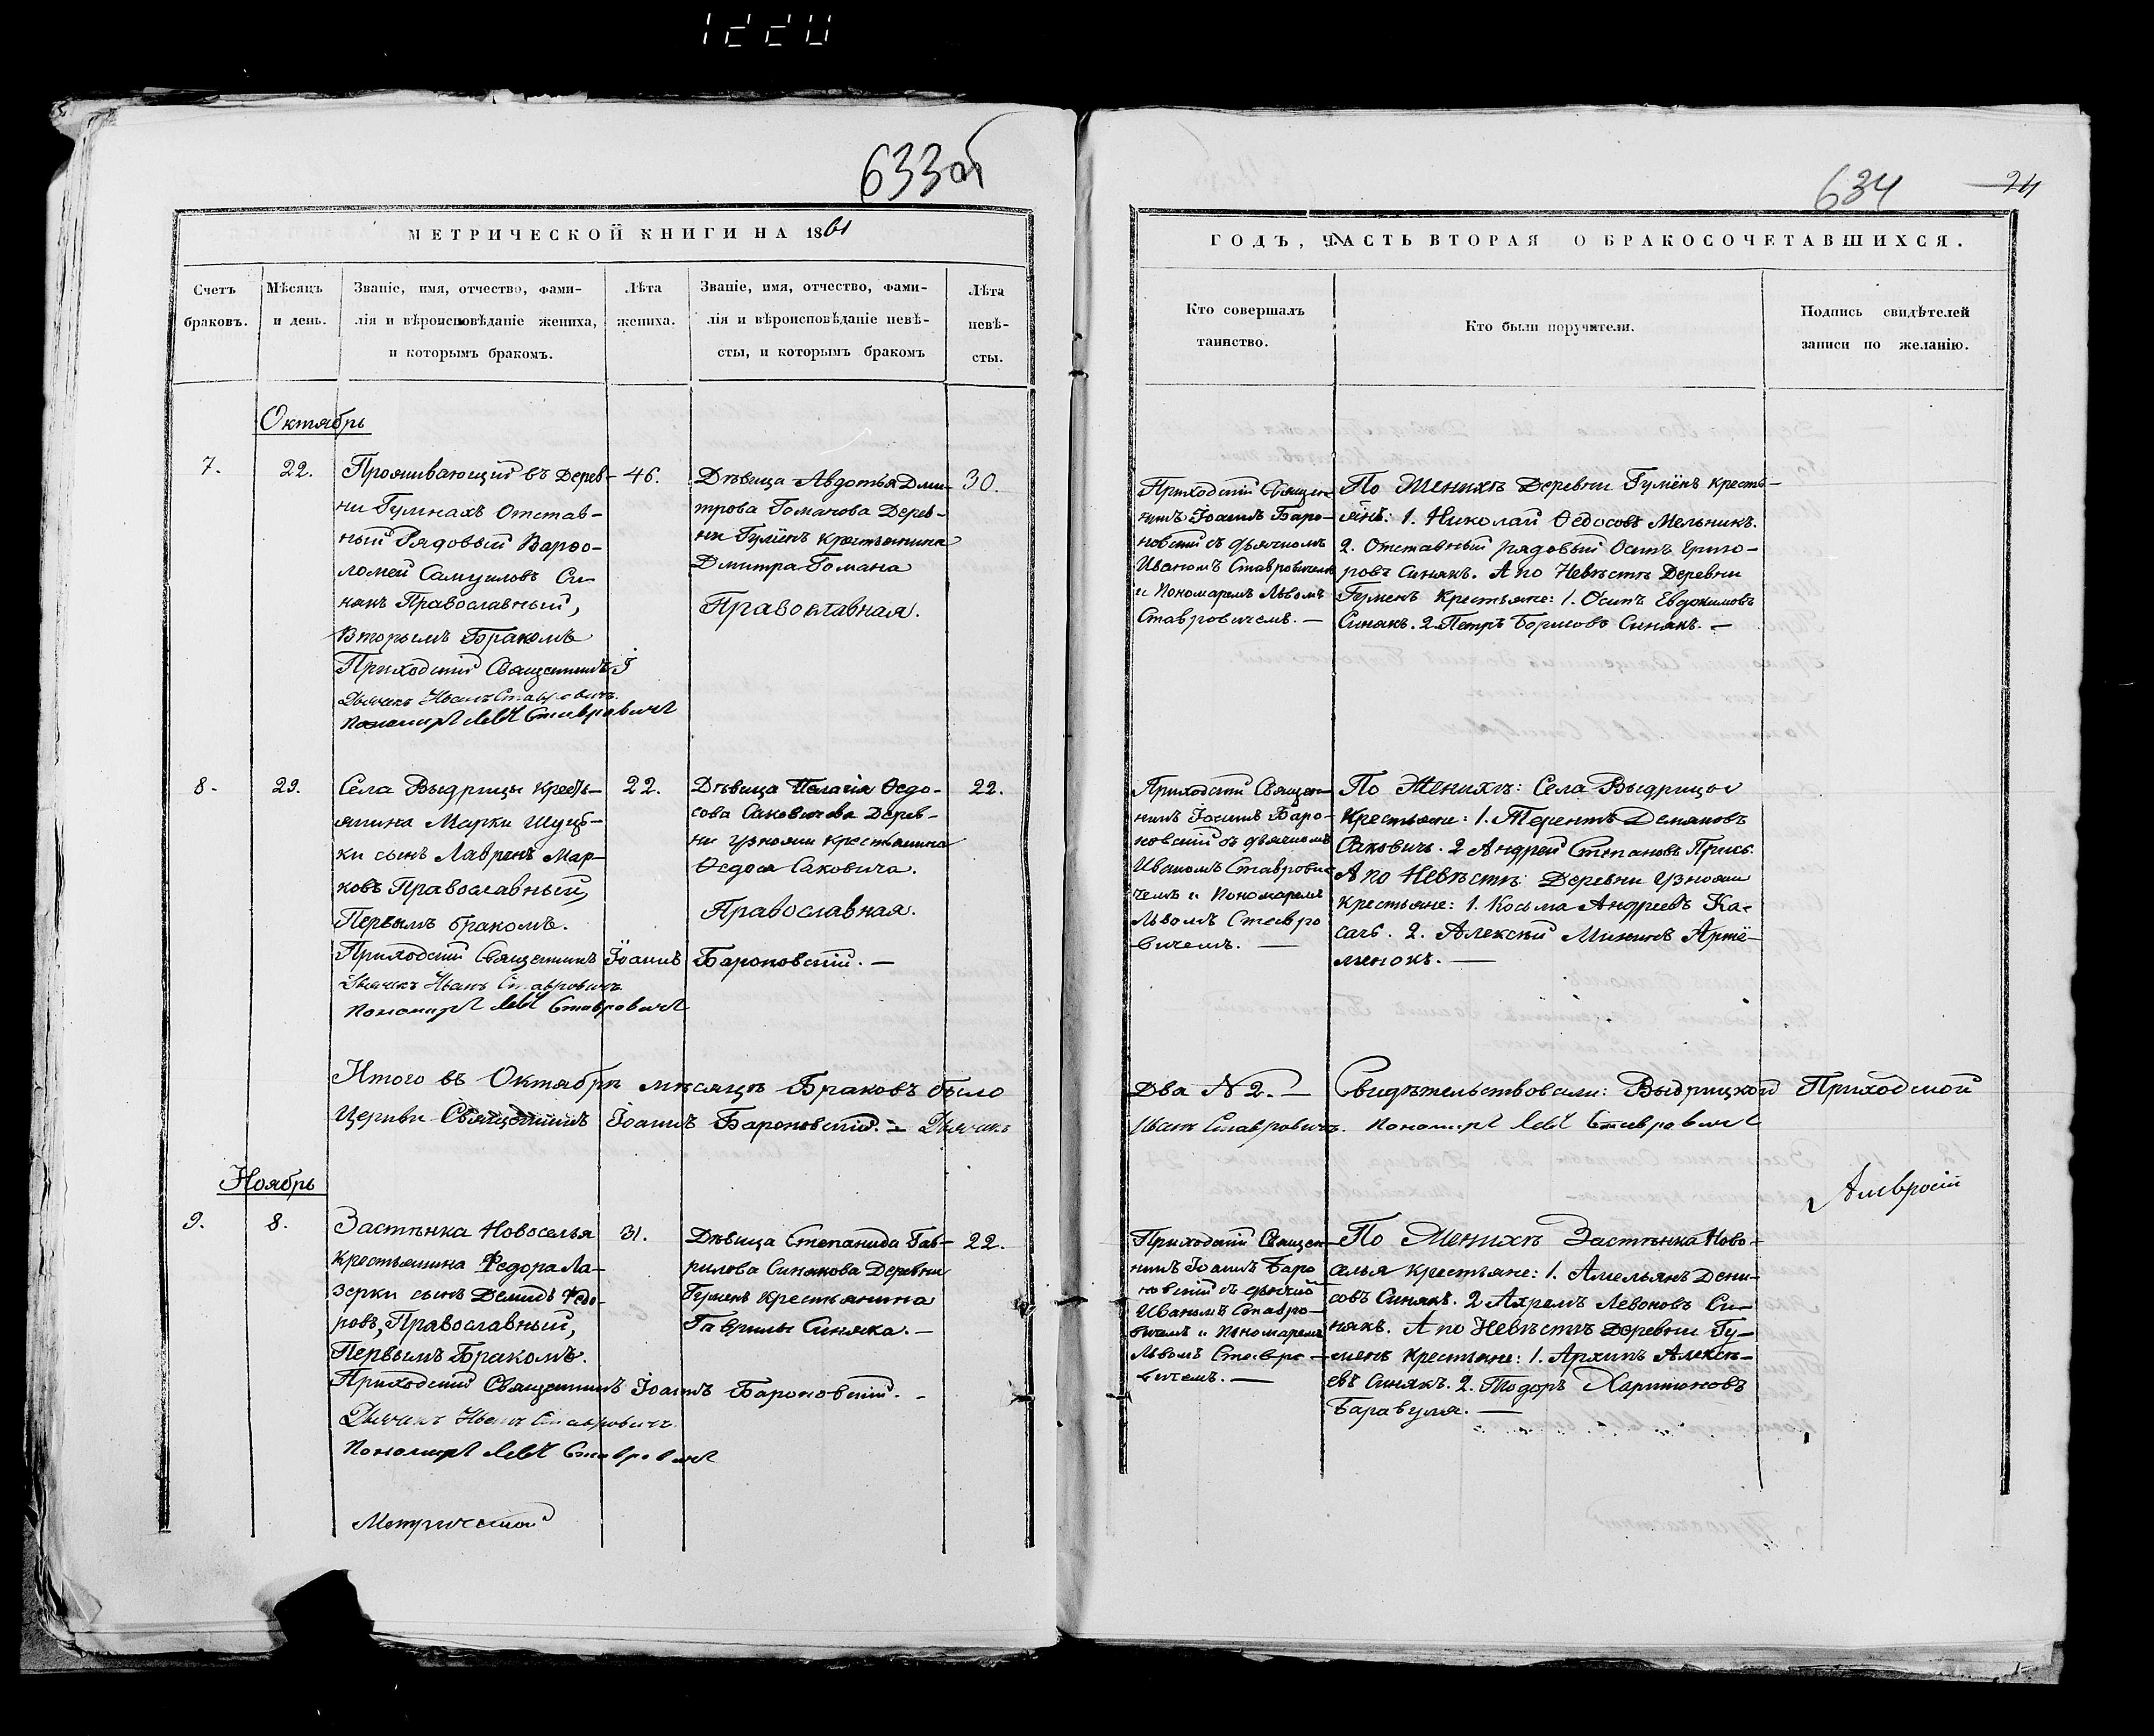 633об
МЕТРИЧЕСКОЙ КНИГИ НА 1861
Счетъ браковъ.
Мѣсяцъ и день.
Званіе, имя, отчество, фами-
лія и вѣроисповѣданіе жениха,
и которымъ бракомъ.
Лѣта
жениха.
Званіе, имя, отчество, фами-
лія и вѣроисповѣданіе невѣ-
сты, и которымъ бракомъ
Лѣта
невѣ-
сты.
Октябрь
7.
22.
Проживающій въ Дерев-
ни Гуминахъ Отстав-
ный Рядовый Варѳо-
ломей Самуиловъ Си-
някъ Православный,
Вторымъ Бракомъ
Приходскій Священникъ І
Дьячекъ Иванъ Ставровичъ.
Пономарь Левъ Ставровичъ
46.
Дѣвица Авдотья Дми-
трова Гоманова Дерев-
ни Гумёнъ Крестьянина
Дмитра Гомана
Православная.
30.
8.
29.
Села Выдрицы Кресть-
янина Марки Шуцб-
ки сынъ Лавренъ Мар-
ковъ Православный,
Первымъ бракомъ.
Приходскій Священникъ Іоаннъ Бароновскій. —
Дьячекъ Иванъ Ставровичъ
Пономарь Левъ Ставровичъ
22.
Дѣвица Пелагія Ѳедо-
сова Саковичова Дерев-
ни Узножи Крестьянина
Ѳедоса Саковича.
Православная.
22.
Итого въ Октябрѣ мѣсяцѣ Браковъ было
Церкви Священникъ Іоаннъ Бароновскій. — Дьячекъ
Ноябрь
9.
8.
Застѣнка Новоселья
Крестьянина Федора Ла-
зерки сынъ Демидъ Федо-
ровъ, Православный,
Первымъ Бракомъ.
Приходскій Священникъ Іоаннъ Бароновскій. -
Дьячекъ Иванъ Ставровичъ
Пономарь Левъ Ставровичъ
31.
Дѣвица Степанида Гав-
рилова Синякова Деревни
Гуменъ Крестьянина
Гаврилы Синяка. —
22.
Метрической
634
24
ГОДЪ, ЧАСТЬ ВТОРАЯ О БРАКОСОЧЕТАВШИХСЯ.
Кто совершалъ
таинство.
Кто были поручители.
Подпись свидѣтелей
записи по желанію.
Приходскій Священ-
никъ Іоаннъ Баро-
новскій съ дьячкомъ
Иваномъ Ставровичемъ
и Пономаремъ Львомъ
Ставровичемъ. —
По Женихѣ Деревни Гумёнъ крест-
янѣ: 1. Николай Ѳедосовъ Мельникъ.
2. Отставный рядовый Осипъ Григо-
ровъ Синякъ. А по Невѣстѣ Деревни
Гуменъ Крестьяне: 1. Осипъ Евдокимовъ
Синякъ. 2. Петръ Борисовъ Синякъ. —
Приходскій Священ-
никъ Іоаннъ Баро-
новскій съ дьячкомъ
Иваномъ Ставрови-
чемъ и Пономаремъ
Львомъ Ставро
вичемъ. —
По Женихѣ: Села Выдрицы
Крестьяне: 1. Терентъ Демяновъ
Саковичъ. 2 Андрей Степановъ
А по Невѣстѣ: Деревни Узножи
Крестьяне: 1. Косьма Андреевъ Ка-
сачъ. 2. Алексѣй Мининъ Артё-
менокъ. —
Два № 2. — Свидѣтельствовали: Выдрицкой Приходской
Иванъ Ставровичъ. Пономарь Левъ Ставровичъ
Амвросій
Приходскій Священ-
никъ Іоаннъ Баро
новскій съ
Иваномъ Ставро-
вичемъ и Пономаремъ
Львомъ Ставро-
вичемъ. —
По Женихѣ Застѣнка Ново-
селья Крестьяне: 1. Амельянъ Дени-
совъ Синякъ. 2 Ахремъ Левоновъ Си-
някъ. А по Невѣстѣ Деревни Гу-
менъ Крестьяне: 1. Архипъ Алексѣ-
евъ Синякъ. 2. Тодоръ Харитоновъ
Баравуля. —